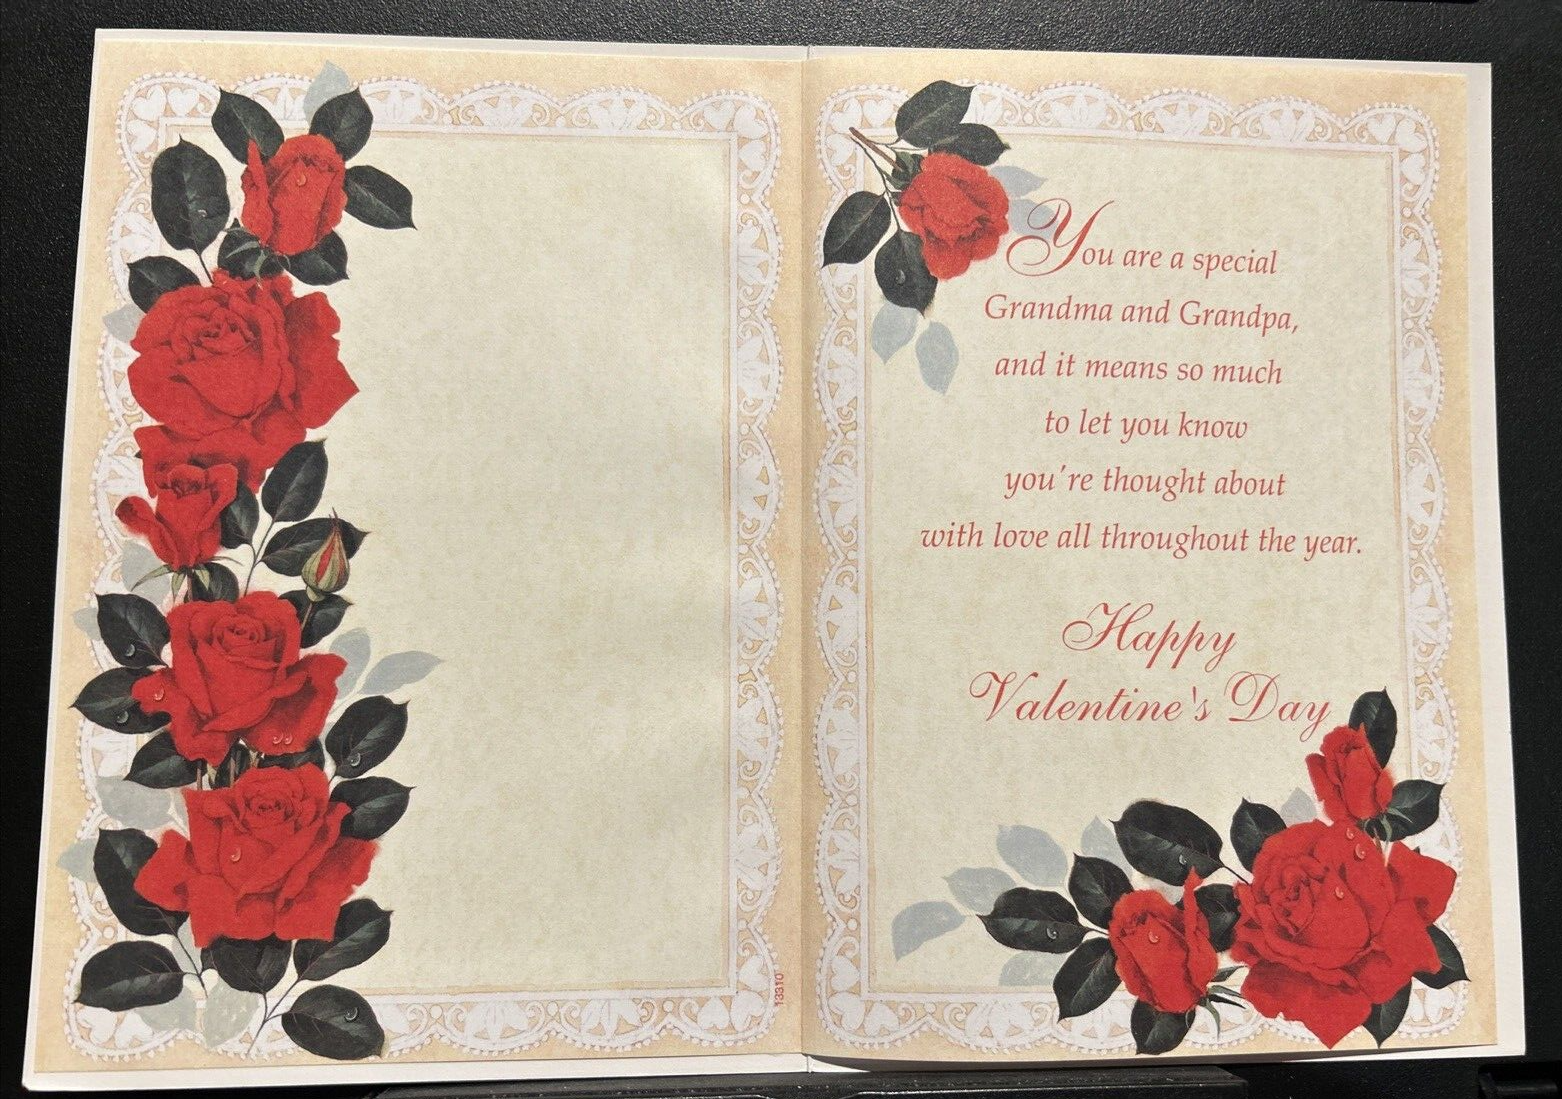 13310
You are a special
Grandma and Grandpa,
and it means so much
to let you know
you're thought about
with love all throughout the year.
Happy
Valentine's Day